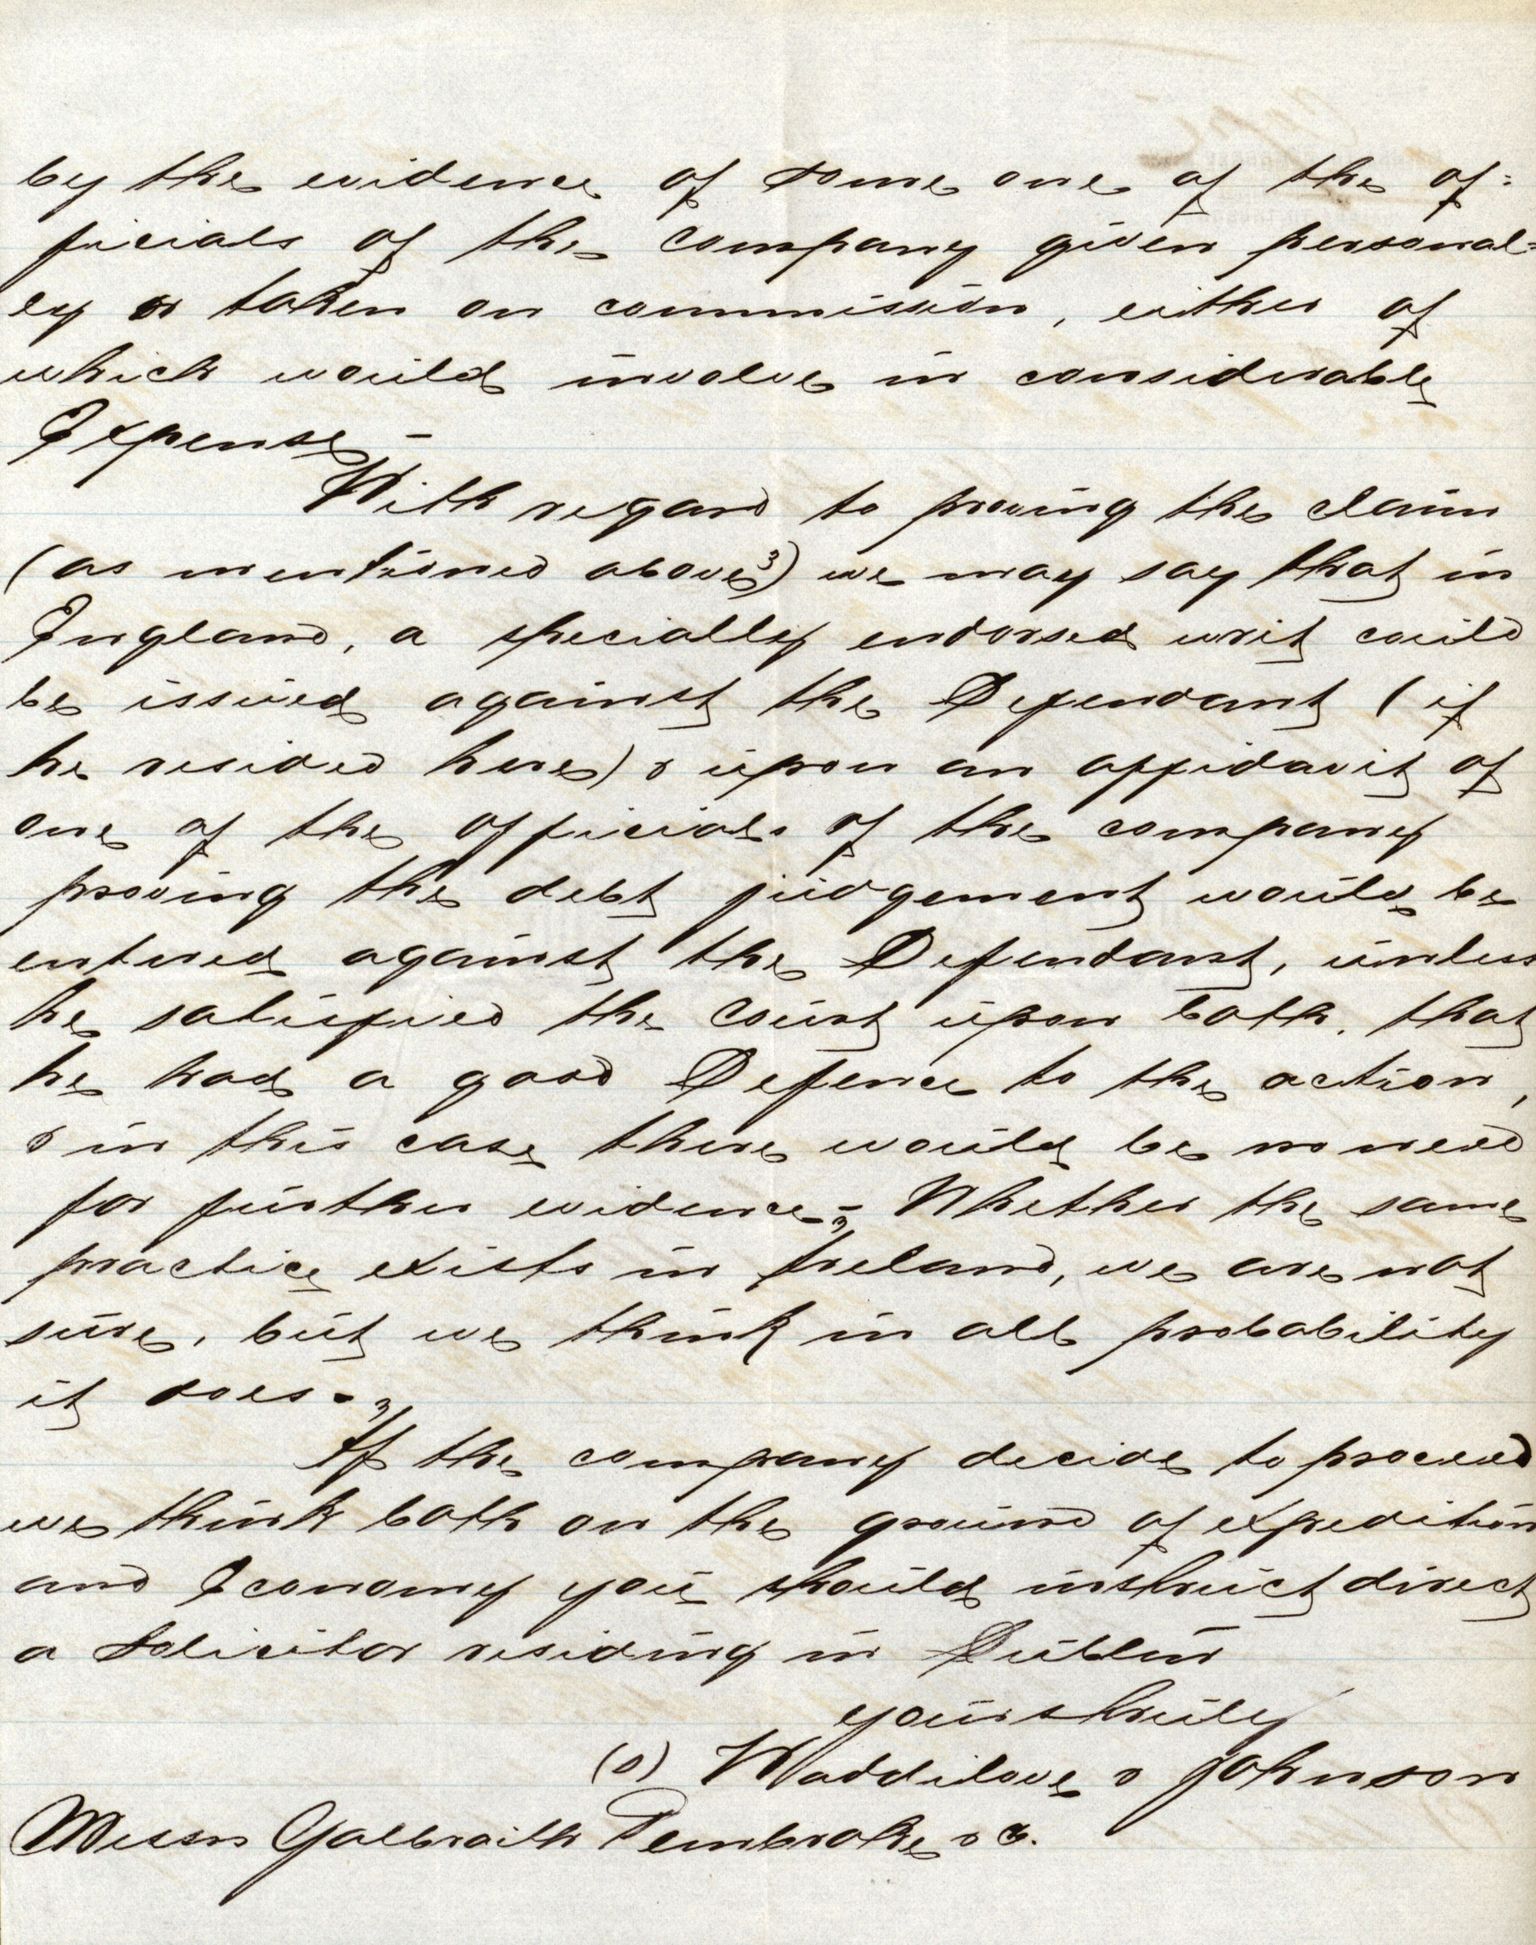 by the evidence of some one of the of=
ficials of the Company given personal=
ly or taken on commission, either of
which would involve in considerable
Expense –
With regard to proving the claim
(as mentioned above) we may say that in
England, a specially endorsed writ could
be issued against the Defendant (if
he resided here) & upon an affidavit of
one of the officials of the company
proving the debt judgement would be
entered against the Defendant, unless
he satisfied the Court upon oath, that
he had a good Defence to the action,
& in this case there would be no need
for further evidence – Whether the same
practice exists in Ireland, we are not
sure, but we think in all probability
it does –
If the company decide to proceed
we think both on the ground of expedition
and Economy you should instruct direct
a Solicitor residing in Dublin
yours truly
(s) Waddilove & Johnson
Messrs Galbraith Pembroke & Co.